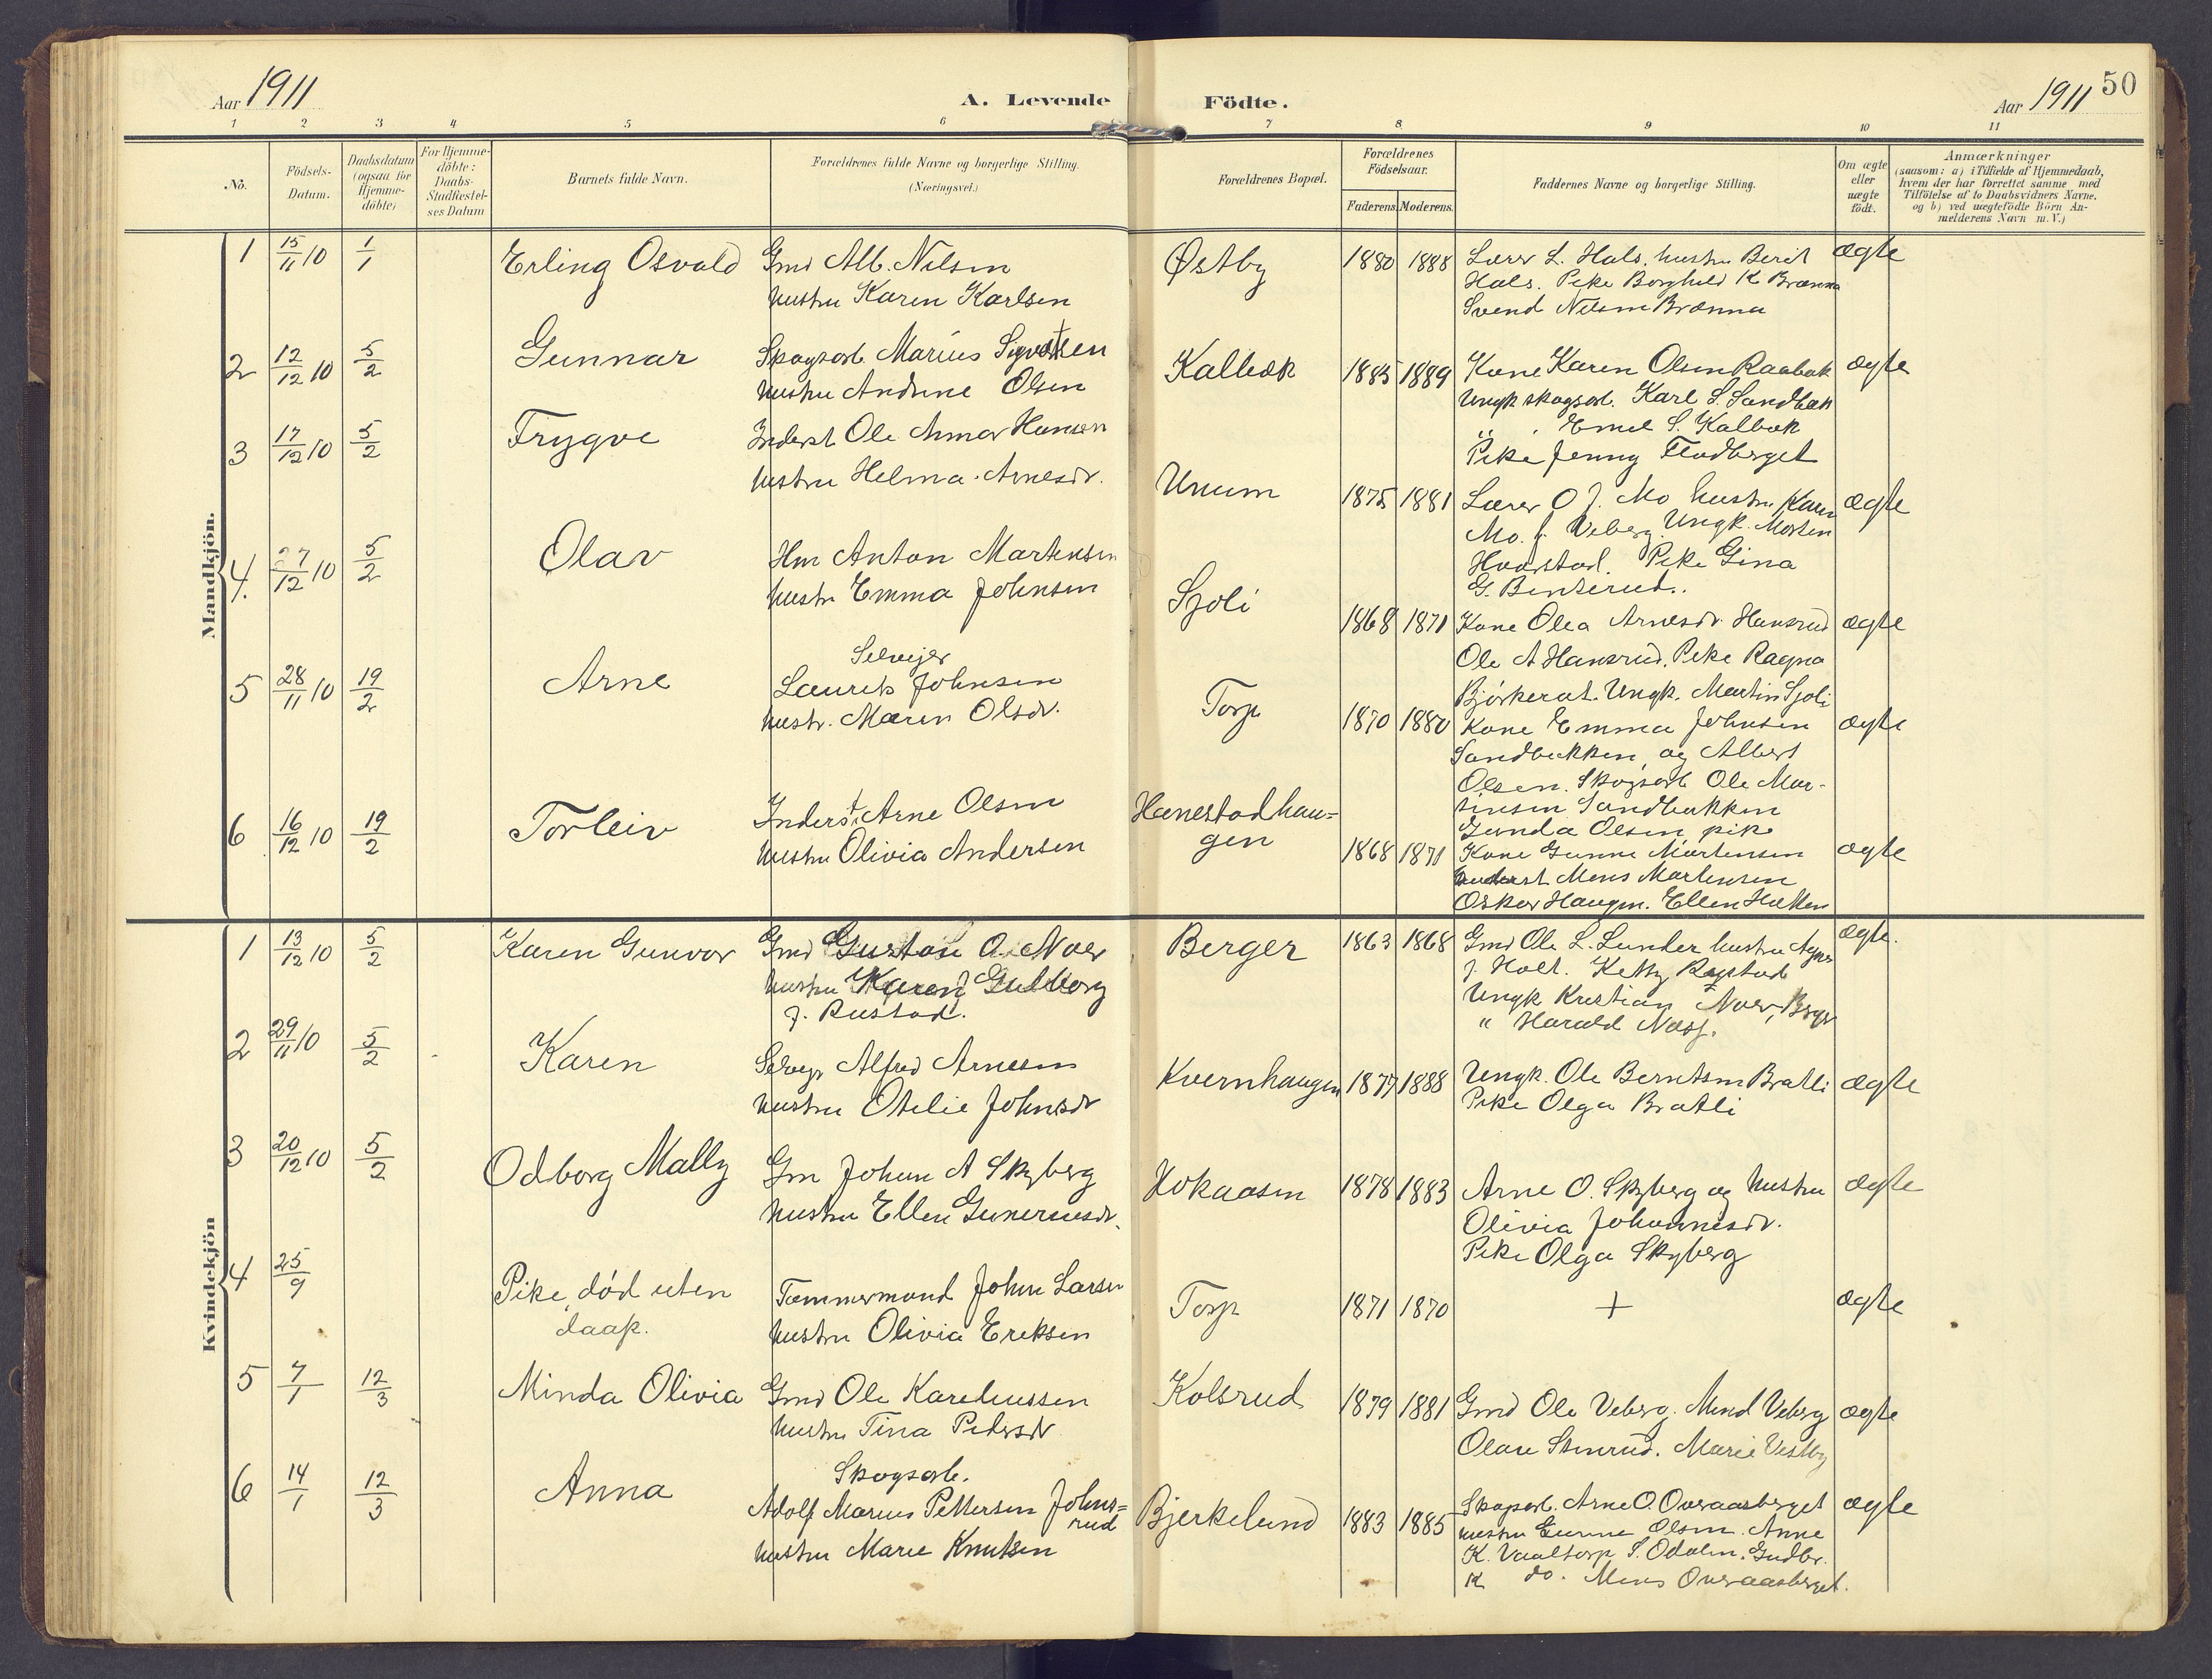 Aar 1911
A. Levende Födte.
Aar 1911
50
1 2 3 4 5 6 7 8 9 10 11
No.
Födsels-Datum.
Daabsdatum (ogsaa for Hjemme-döbte)
For Hjemme-döbte: Daabs-Stadfæstel-ses Datum
Barnets fulde Navn.
Forældrenes fulde Navne og borgerlige Stilling. (Næringsvei.)
Forældrenes Bopæl.
Forældrenes Födselsaar.
Faderens. Moderens.
Faddernes Navne og borgerlige Stilling.
Om ægte eller uægte födt.
Anmærkninger
(saasom: a) i Tilfælde af Hjemmedaab,
hvem der har forrettet samme med
Tilföielse af to Daabsvidners Navne.
og b) ved uægtefödte Börn An-
melderens Navn m. V.)
Mandkjön.
1 15/11 10 1/1 Erling Osvald Gmd Alb. Nilsen Østby 1880 1888 Lærer L. Hals, hustru Berit ægte
hustru Karen Karlsen Hals. Pike Borghild K Brænna
Svend Nilsen Brænna
2 12/12 10 5/2 Gunnar Skogsarb. Marius Kalbæk 1885 1889 Kone Karen Olsen Raabæk ægte
hustru Andrine Olsen Ungk skogsarb. Karl S. Sandbæk
" Emil S. Kalbæk
Pike Jenny Flodberget
3 17/12 10 5/2 Trygve Inderst Ole Hansen Unum 1875 1881 Lærer O J. Mo hustru Karen ægte
hustru Helma Arnesdr. Mo. f. Veberg. Ungk. Morten
Pike Gina
G. Benserud.
4. 27/12 10 5/2 Olav Hm Anton Martinsen Sjoli 1868 1871 Kone Olea Arnesdr. Hansrud ægte
hustr Emma Johnsen Ole A Hansrud. Pike Ragna
Ungk. Martin Sjoli
5 28/11 10 19/2 Arne Selveier Torp 1870 1880 Kone Emma Johnsen ægte
Laurits Johnsen Sandbækken, og Albert
hustr. Maren Olsdr. Olsen. Skogsarb Ole Mar-
tinsen Sandbakken
Gunda Olsen pike
6 16/12 10 19/2 Torleiv Inderst. Arne Olsen Hanestadhau= 1868 1871 Kone Gunne Martinsen ægte
hustru Olivia Andersen gen Inderst Mons Martinsen
Oskar Haugen. Ellen
Kvindekjön
1 13/12 10 5/2 Karen Gunvor Gmd Gustav A. Noer Berger 1863 1868 Gmd Ole L. Lunder hustru Agnes ægte.
hustru Karen Gulborg f. Holt. Ketty Rustad
f. Rustad. Ungk Kristian Noer, Berger
" Harald Næss.
2 29/11 10 5/2 Karen Selveier Alfred Arnesen Kvernhaugen 1877 1888 Ungk. Ole Berntsen Bratli ægte
hustru Otelie Johnsdr Pike Olga Bratli
3 20/12 10 5/2 Odborg Mally Gm Johan A Skyberg Hokaasen 1878 1883 Arne O. Skyberg og hustru ægte
hustru Ellen Gunerusdr. Olivia Johannesdr.
Pike Olga Skyberg
4 25/9 Pike, død uten Tømmermand John Larsen Torp 1871 1870 + ægte
daap. hustru Olivia Eriksen
5 7/1 12/3 Minda Olivia Gmd Ole Kareliussen Kolsrud 1879 1881 Gmd Ole Veberg. Mind Veberg ægte
hustru Tina Pedersdr Olau Stenrud. Marie Vestby
6 14/1 12/3 Anna Skogsarb. Bjerkelund 1883 1885 Skogsarb. Arne O. Overaasberget ægte
Adolf Marius Pettersen Johns= hustru Gunne Olsen. Anne
rud K. Vaaltorp S. Odalen. Gudbr.
hustru Marie Knutsen K do. Mons Overaasberget.